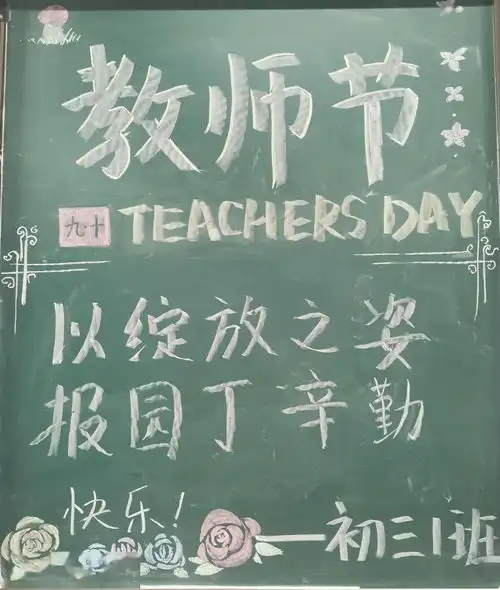 教师节
九·十 TEACHERS DAY
以绽放之姿
报园丁辛勤
快乐!
——初三1班